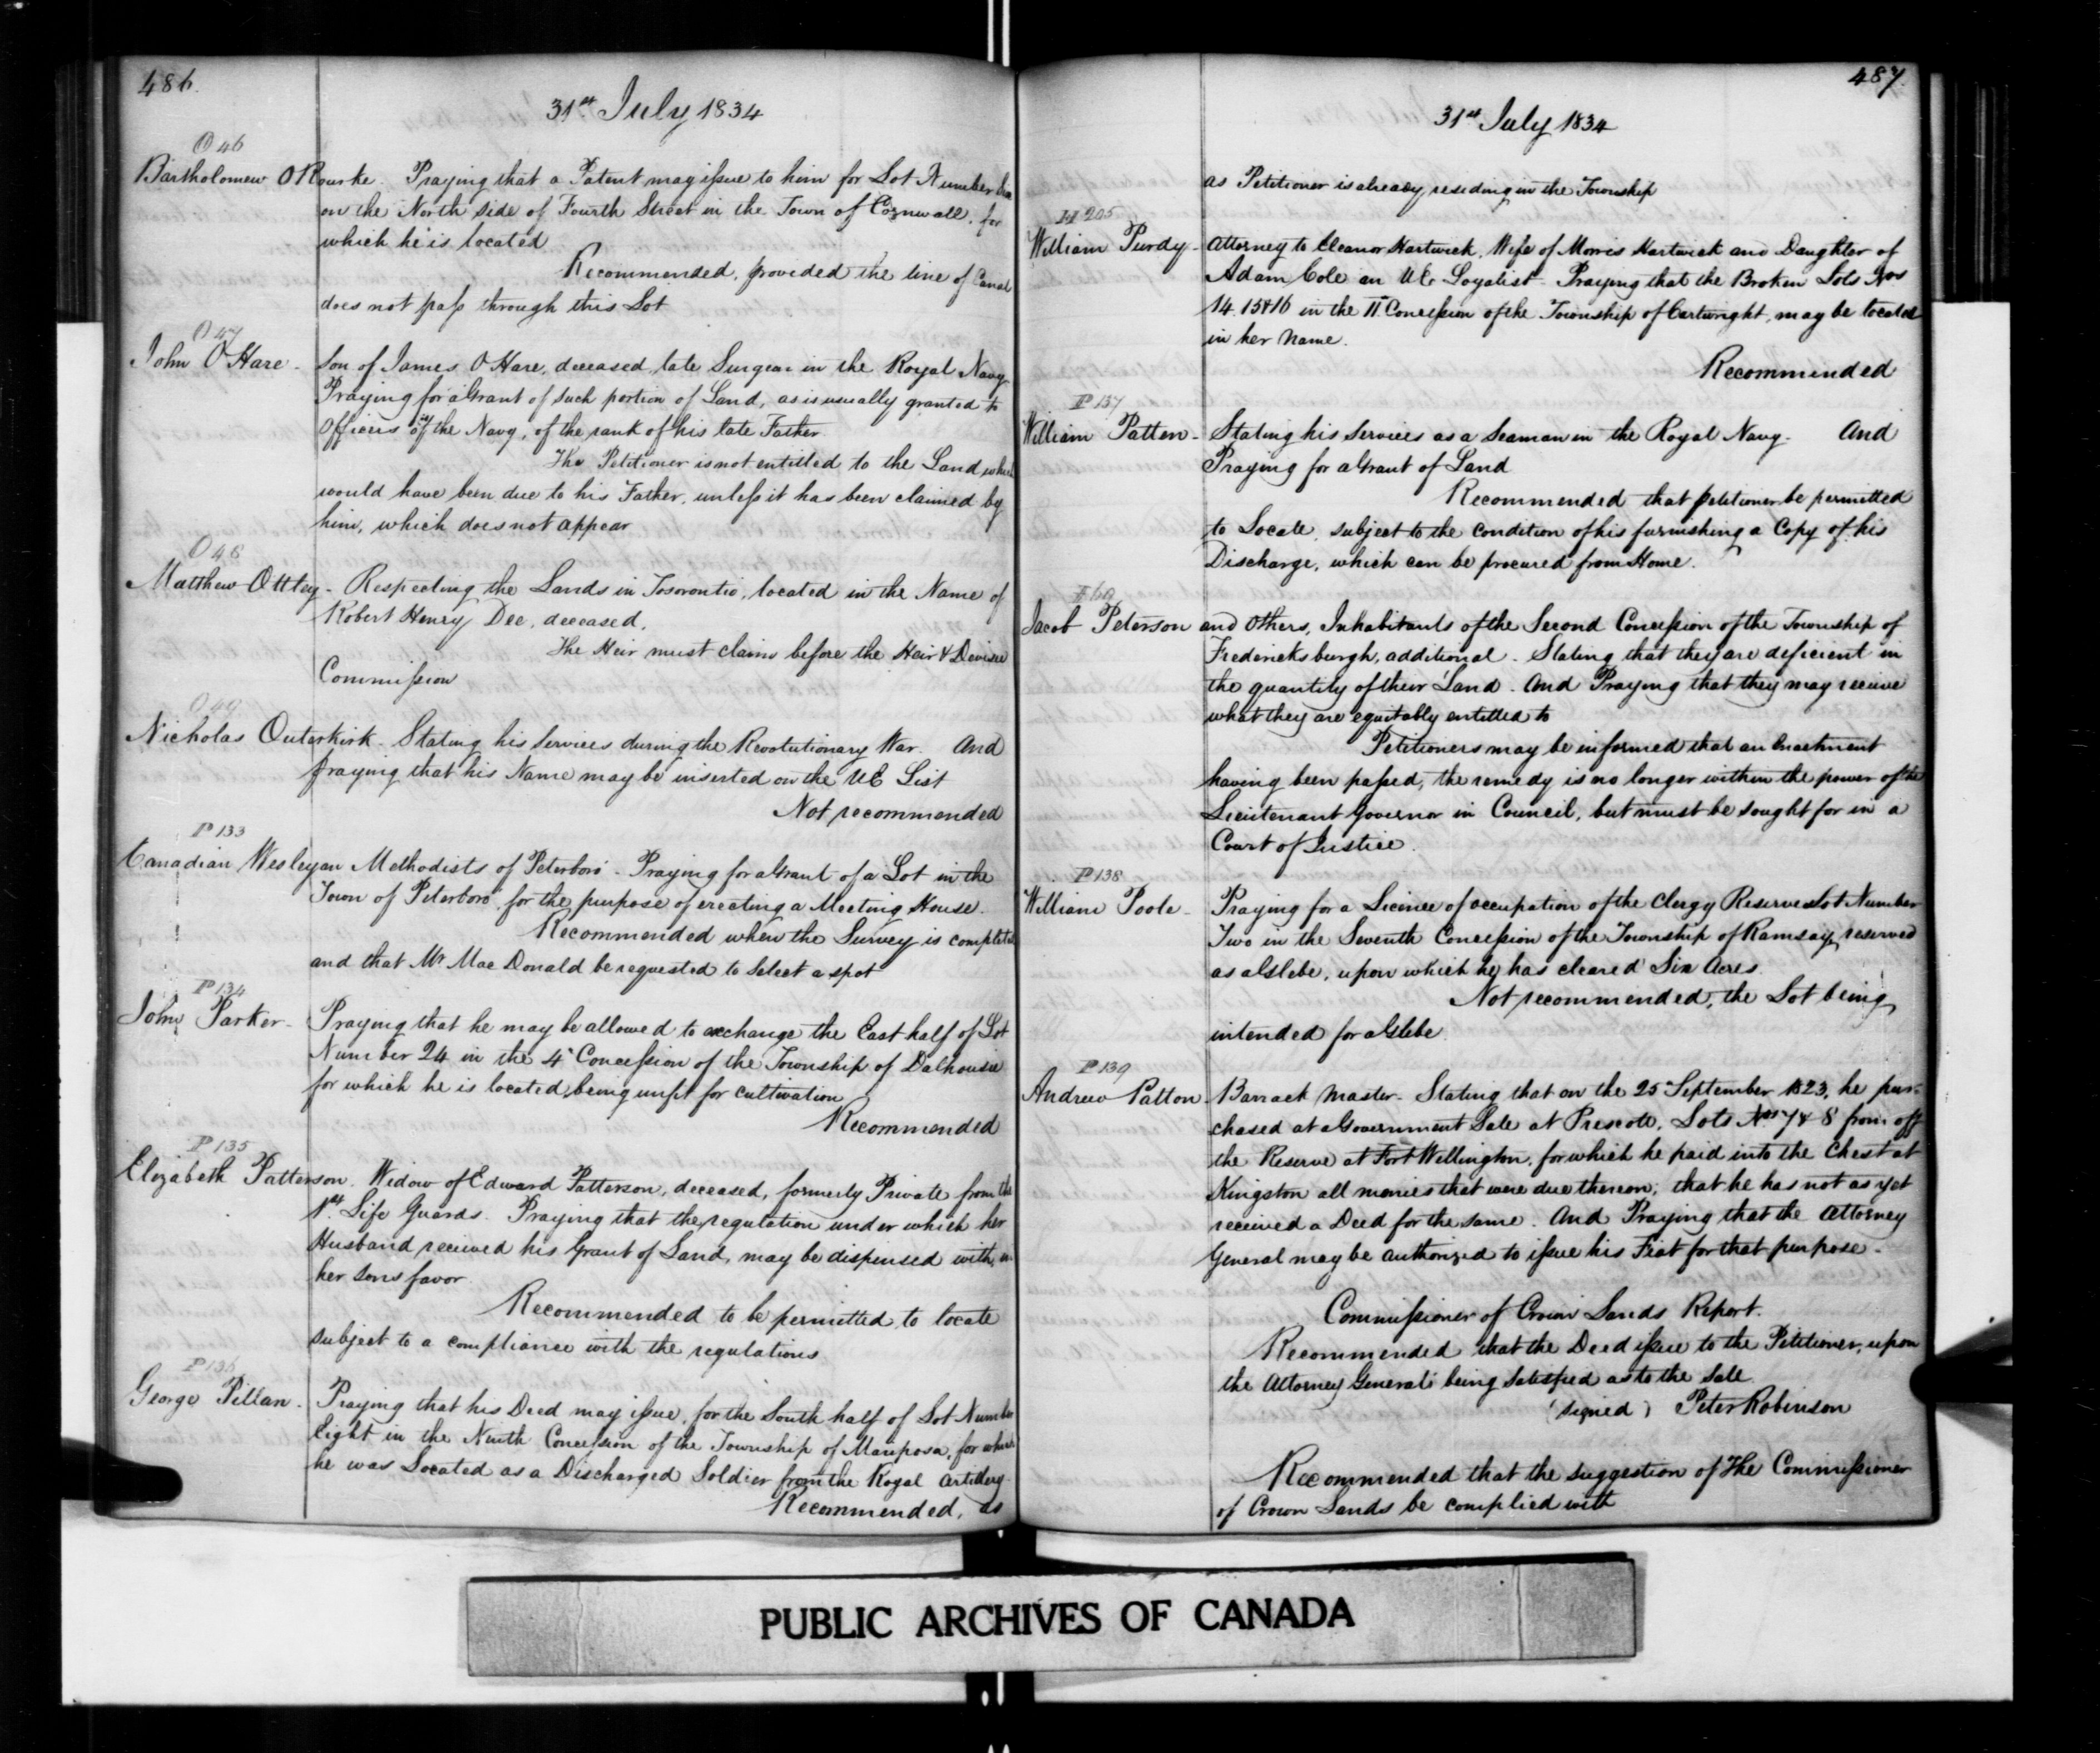 486.
31st July 1834
O 46
Bartholomew O Rourke. Praying that a Patent may issue to him for Lot Number
on the North side of Fourth Street in the Town of Cornwall, for
which he is located
Recommended, provided the line of Canal
does not pass through this Lot
O 47
John O Hare - Son of James O Hare, deceased, late Surgeon in the Royal Navy
Praying for a Grant of such portion of Land, as is usually granted to
Officers of the Navy, of the rank of his late Father.
The Petitioner is not entitled to the Land which
would have been due to his Father, unless it has been claimed by
him, which does not appear
O 48
Matthew Ottley - Respecting the Lands in Tosorontio, located in the Name of
Robert Henry Dee, deceased.
The Heir must claim before the Heir & Devisee
Commission
O 49
Nicholas Outerkirk - Stating his Services during the Revolutionary War. And
praying that his Name may be inserted on the UE List
Not recommended
P 133
Canadian Wesleyan Methodists of Peterboro' - Praying for a Grant of a Lot in the
Town of Peterboro', for the purpose of erecting a Meeting House.
Recommended when the Survey is completed
and that Mr Mac Donald be requested to select a spot
P 134
John Parker - Praying that he may be allowed to exchange the East half of Lot
Number 24 in the 4th Concession of the Township of Dalhousie
for which he is located, being unfit for cultivation
Recommended
P 135
Elizabeth Patterson. Widow of Edward Patterson, deceased, formerly Private from the
1st Life Guards. Praying that the regulation under which her
Husband received his Grant of Land, may be dispensed with, in
her sons favor.
Recommended to be permitted to locate
subject to a compliance with the regulations
P 136
George Pillan - Praying that his Deed may issue, for the South half of Lot Number
Eight in the Ninth Concession of the Township of Mariposa, for which
he was Located as a Discharged Soldier from the Royal Artillery
Recommended, as
487.
31st July 1834
as Petitioner is already residing in the Township
H 205
William Purdy - Attorney to Eleanor Hartwick, Wife of Morris Hartwick and Daughter of
Adam Cole an UE Loyalist - Praying that the Broken Lots Nos
14. 15 & 16 in the 11th Concession of the Township of Cartwright, may be located
in her Name.
Recommended
P 137
William Patton - Stating his Services as a Seaman in the Royal Navy - And
Praying for a Grant of Land
Recommended that petitioner be permitted
to Locate, subject to the condition of his furnishing a Copy of his
Discharge, which can be procured from Home.
Jacob Peterson and Others, Inhabitants of the Second Concession of the Township of
Fredericksburgh, additional - Stating that they are deficient in
the quantity of their Land. And Praying that they may receive
what they are equitably entitled to
Petitioners may be informed that an Enactment
having been passed, the remedy is no longer within the power of the
Lieutenant Governor in Council, but must be sought for in a
Court of Justice.
P 138
William Poole - Praying for a Licence of occupation of the Clergy Reserve Lot Number
Two in the Seventh Concession of the Township of Ramsay, reserved
as a Glebe, upon which he has cleared Six Acres.
Not recommended, the Lot being
intended for a Glebe
P 139
Andrew Patton - Barrack Master - Stating that on the 25th September 1823, he pur-
chased at a Government Sale at Prescott, Lots Nos 7 & 8 from off
the Reserve at Fort Wellington, for which he paid into the Chest at
Kingston all monies that were due thereon; that he has not as yet
received a Deed for the same. And Praying that the Attorney
General may be authorized to issue his Fiat for that purpose -
Commissioner of Crown Lands Report.
Recommended that the Deed issue to the Petitioner, upon
the Attorney General's being satisfied as to the Sale
(signed) Peter Robinson
Recommended that the suggestion of The Commissioner
of Crown Lands be complied with
PUBLIC ARCHIVES OF CANADA